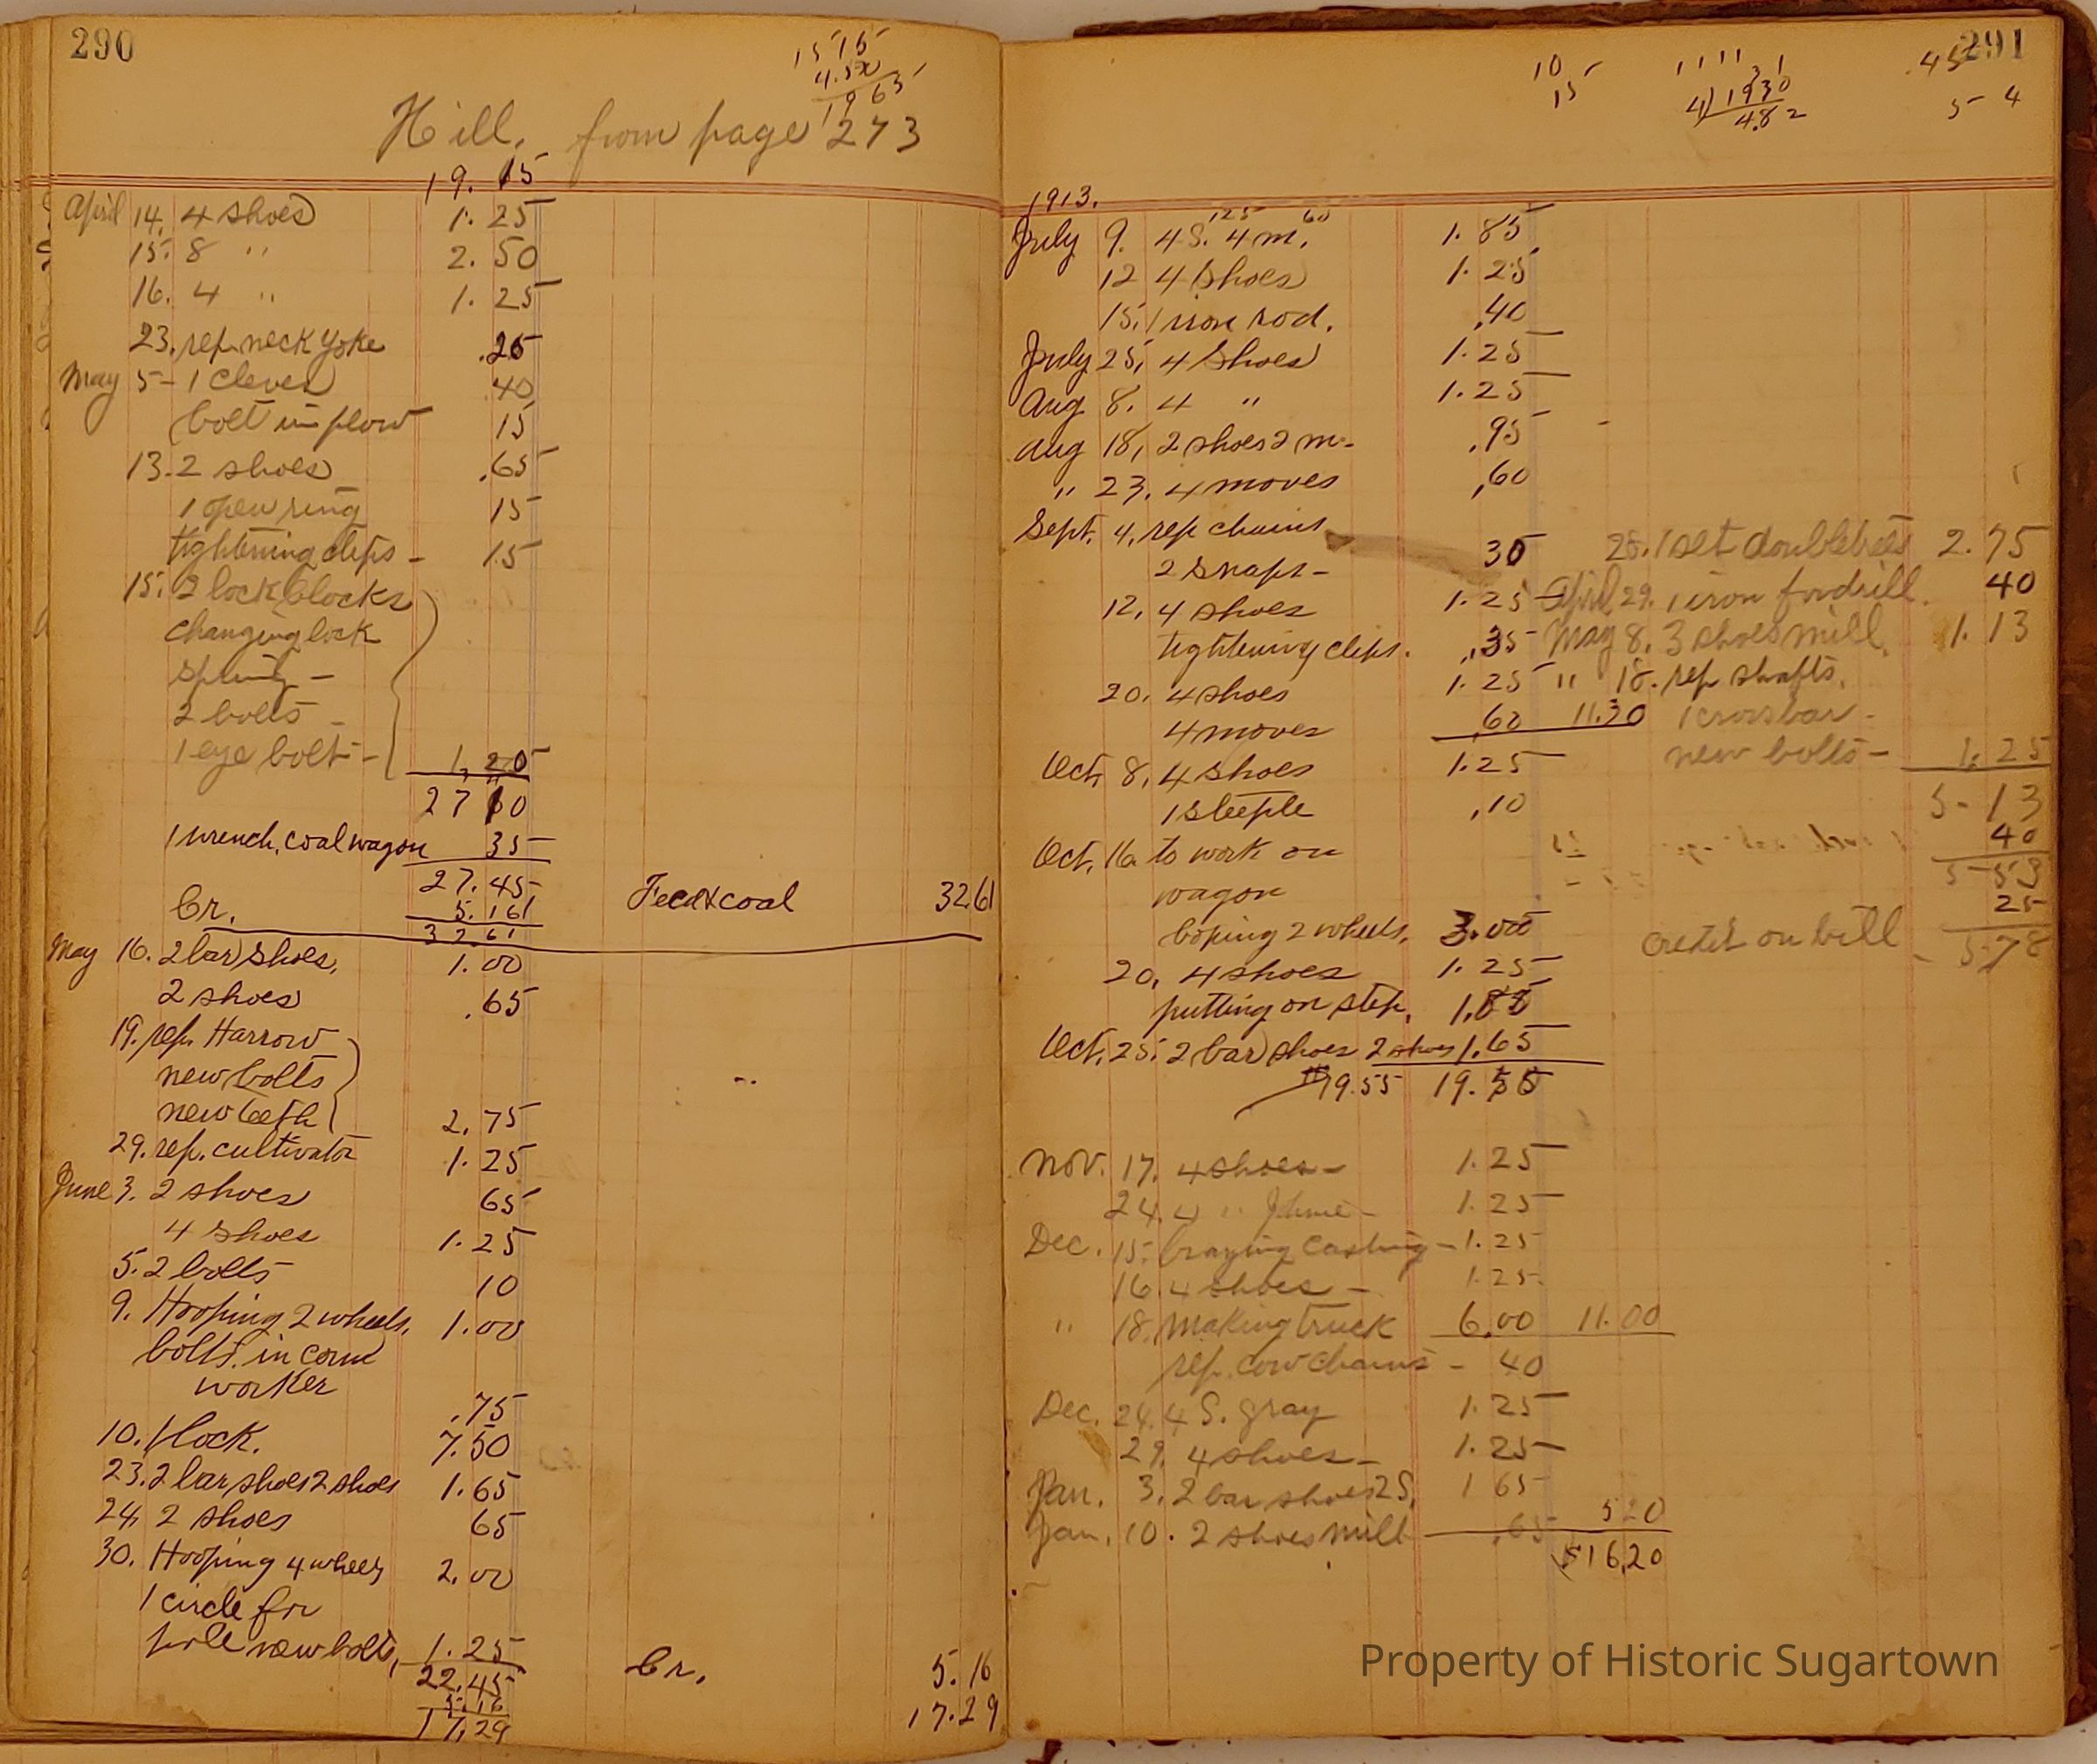 290
15 15
4.50
19 65
Hill, from page 273
19. 15
April 14. 4 shoes 1. 25
15. 8 " 2. 50
16. 4 " 1. 25
23. rep. neck yoke .25
May 5 - 1 Clever 40
bolt in plow 15
13. 2 shoes .65
1 open ring 15
tightening clips - 15
15. 2 lock blocks
changing lock
spring -
2 bolts -
1 eye bolt - 1. 20
27 10
1 wrench, coal wagon 35
27. 45
Cr. 5. 161 Feed & coal 32 61
32. 61
May 16. 2 bar shoes, 1. 00
2 shoes .65
19. rep. Harrow
new bolts
new teeth 2. 75
29. rep. cultivator 1. 25
June 3. 2 shoes 65
4 shoes 1. 25
5. 2 bolts 10
9. Hooping 2 wheels, 1. 00
bolts in corn
worker .75
10. 1 lock. 7.50
23. 2 bar shoes 2 shoes 1. 65
24, 2 shoes 65
30. Hooping 4 wheels 2. 00
1 circle for
pole new bolts, 1. 25
22. 45 Cr. 5. 16
5. 16
17. 29 17. 29
291
10
15
1 1 1 1
4) 1930
4.82
.45
5 4
1913.
July 9. 4 S. 125 4 m. 60 1. 85
12 4 shoes 1. 25
15. 1 iron rod. .40
July 25, 4 Shoes 1. 25
Aug 8. 4 " 1. 25
Aug 18, 2 shoes 2 m - .95
" 23. 4 moves .60
Sept. 4. rep chains
2 snaps - 30
12. 4 shoes 1. 25
tightening clips. .35
20. 4 shoes 1. 25
4 moves 60 11.30
Oct. 8. 4 shoes 1.25
1 steeple .10
Oct. 16 to work on
wagon
hoping 2 wheels. 3.00
20, 4 shoes 1. 25
putting on step.
Oct. 25. 2 bar shoes 2 shoes 1.65
19.55 19. 55
Nov. 17. 4 shoes - 1. 25
24. 4 " 1. 25
Dec. 15. brazing casting - 1. 25
16 4 shoes - 1. 25
" 18. making truck 6.00 11.00
rep. cow chains - 40
Dec. 24. 4 S. gray 1. 25
29. 4 shoes - 1. 25
Jan. 3. 2 bar shoes 2 S. 1 65
Jan. 10. 2 shoes mill .65 5 20
$16.20
25. 1 set doubletrees 2. 75
April 29. 1 iron for drill. 40
May 8. 3 shoes mill, 1. 13
" 18. rep shafts,
1 crossbar -
new bolts - 1. 25
5 - 13
40
5 - 53
25
credit on bill - 5.78
Property of Historic Sugartown